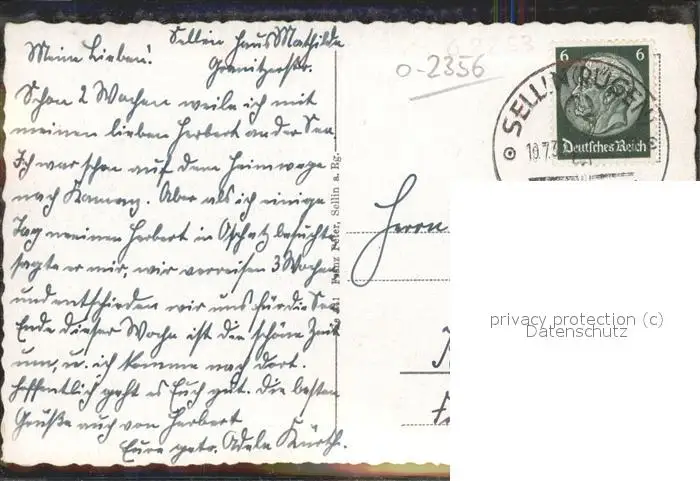 Sellin Haus Mathilde
Granitzerstr.
Meine Lieben!
Schon 2 Wochen weile ich mit
meinen lieben Herbert an der See
Ich war schon auf dem Heimwege
nach Kamenz. Aber als ich einige
Tag meinen Herbert in Oschatz besuchte
sagte er mir, wir verreisen 3 Wochen
und entschieden wir uns für die See
Ende dieser Woche ist die schöne Zeit
um, u. ich komme nach dort.
Hoffentlich geht es Euch gut. Die besten
Grüße auch von Herbert
Eure getr. Adele Kürth.
Franz Peter, Sellin a. Rg.
0-2356
6 6
Deutsches Reich
SELLIN (RÜGEN)
10.7.3
Herrn
privacy protection (c)
Datenschutz